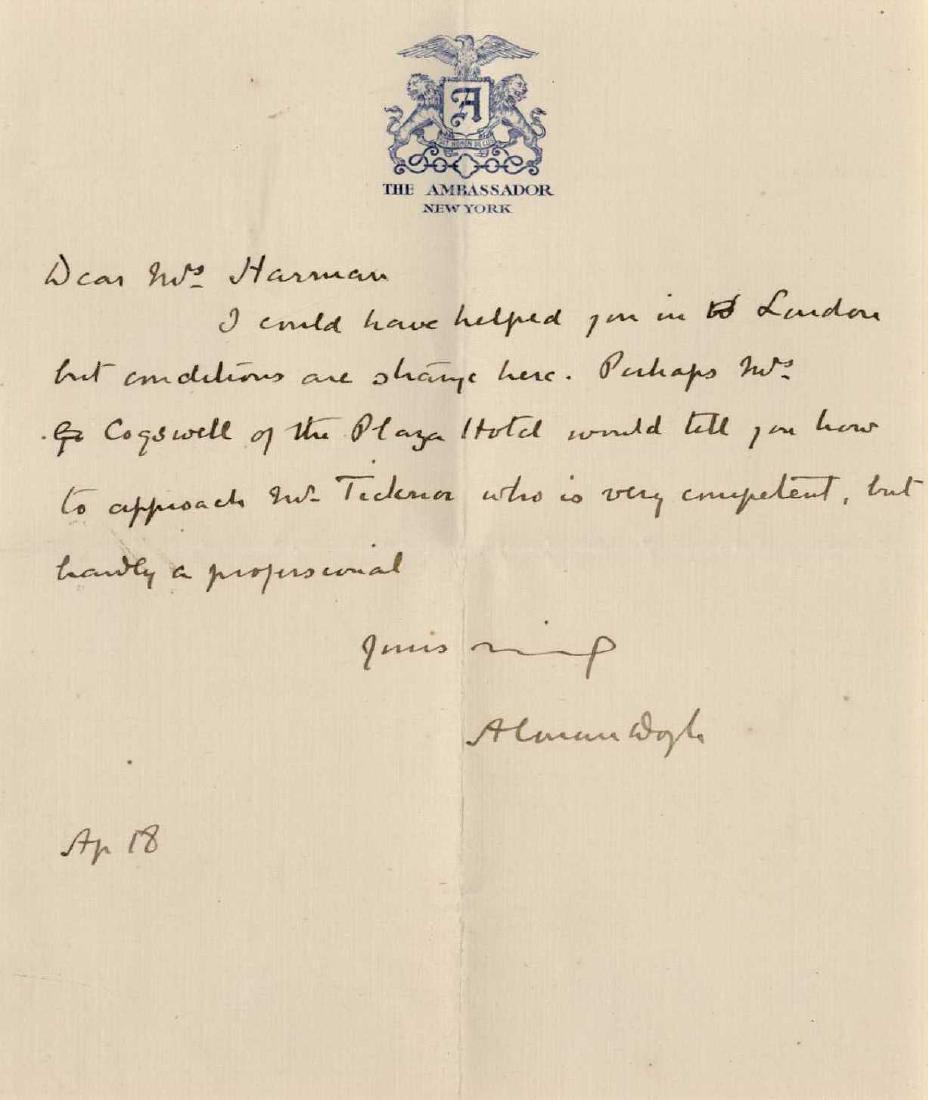 A
THE AMBASSADOR
NEW YORK
Dear Mrs Harman
I could have helped you in London
but conditions are strange here. Perhaps Mrs
Cogswell of the Plaza Hotel would tell you how
to approach Mr Ticknor who is very competent, but
hardly a professional
Yours
A Conan Doyle
Ap 18